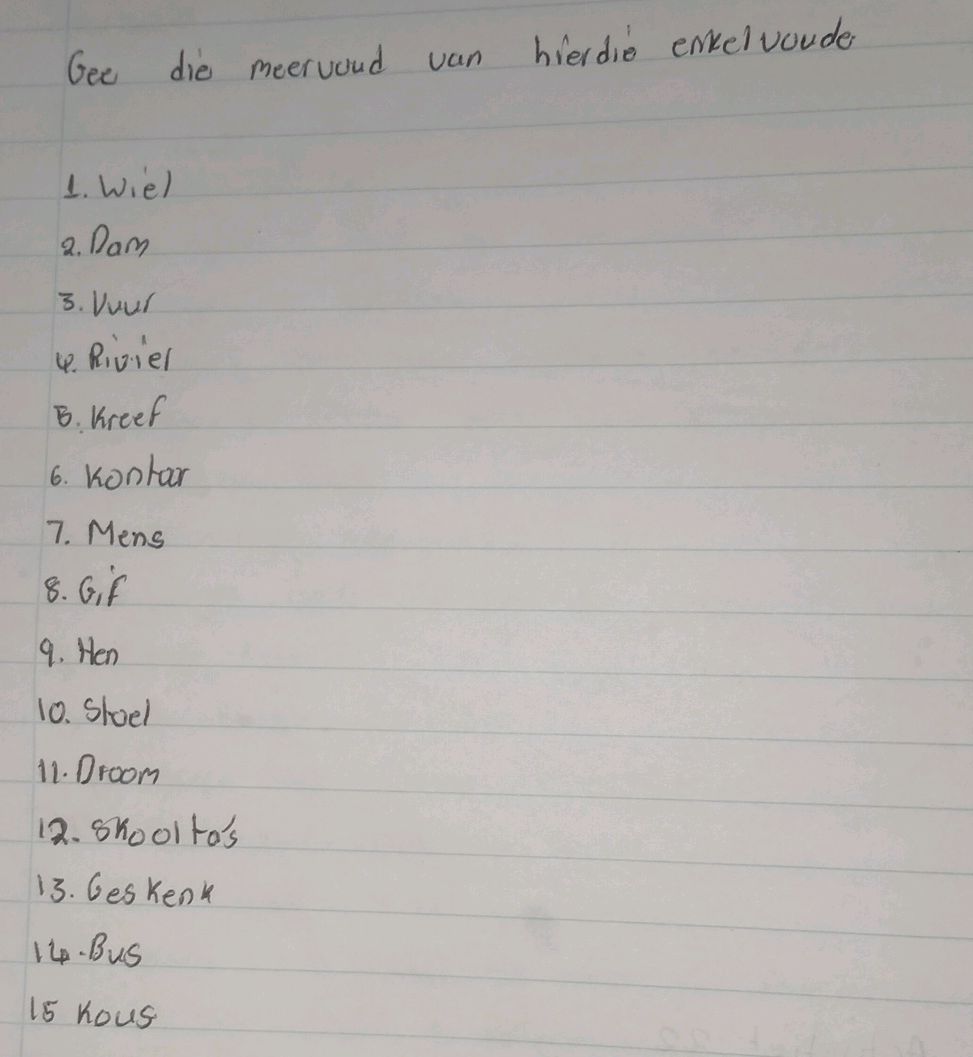 Gee die meervoud van hierdie enkelvoude
1. Wiel
2. Dam
3. Vuur
4. Rivier
5. Kreef
6. Kontar
7. Mens
8. Gif
9. Hen
10. Stoel
11. Droom
12. Skool ta's
13. Geskenk
14. Bus
15 Kous